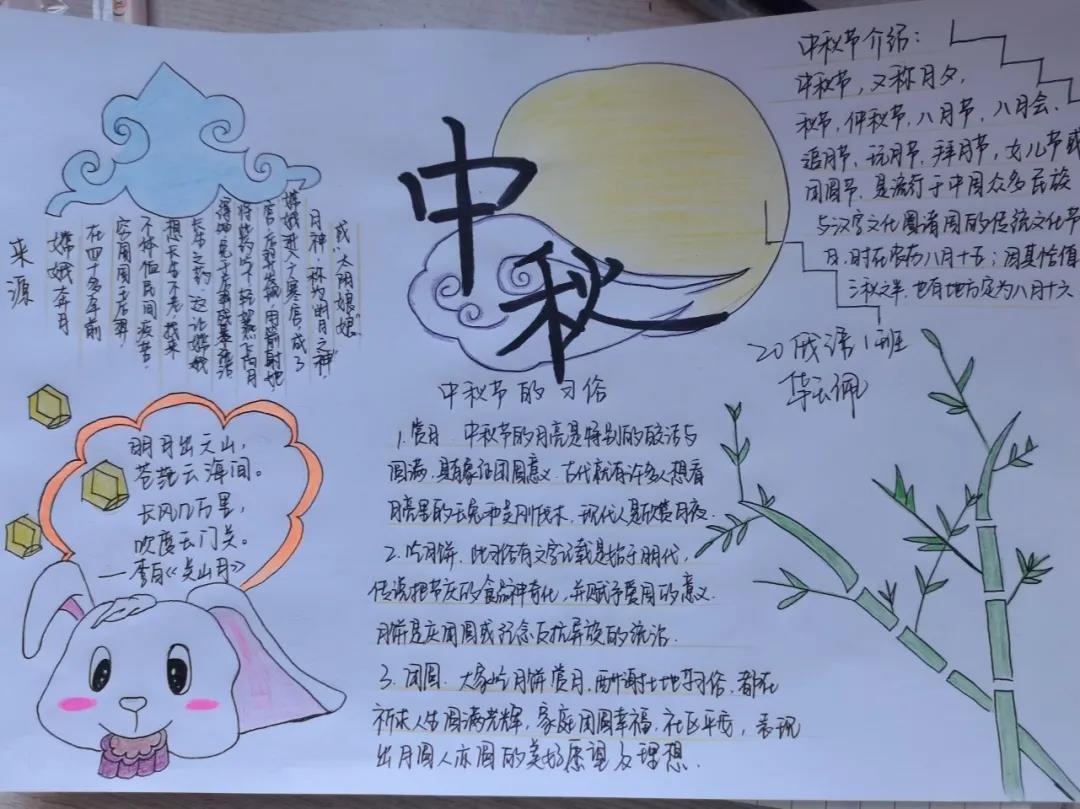 中秋节介绍：
中秋节，又称月夕，
秋节，仲秋节，八月节，八月会，
追月节，玩月节，拜月节，女儿节或
团圆节，是流行于中国众多民族
与汉字文化圈诸国的传统文化节
日，时在农历八月十五；因其恰值
三秋之半，也有地方定为八月十六
20俄语1班
中秋
来源
嫦娥奔月
在四十多年前
后羿
不体恤民间疾苦
想长生不老，找来
长生之药，这让嫦娥
将药吃下，轻飘飘飞向月
宫，后羿 用箭射她
嫦娥进入广寒宫，成了
月神，称为"明月之神"
或"太阴娘娘"
明月出天山，
苍茫云海间。
长风几万里，
吹度玉门关。
——李白《关山月》
中秋节的习俗
1.赏月 中秋节的月亮是特别的皎洁与
圆满，具有象征团圆意义，古代就有许多人想看
月亮里的玉兔和吴刚伐木，现代人是欣赏月夜.
2.吃月饼，此习俗有文字记载是始于明代，
传说把节庆的食品神奇化，并赋予爱国的意义.
月饼是庆团圆或纪念反抗异族的统治.
3.团圆 大家吃月饼赏月，酬谢土地等习俗，都在
祈求人生圆满光辉，家庭团圆幸福，社区平安，表现
出月圆人亦圆的美好愿望及理想.